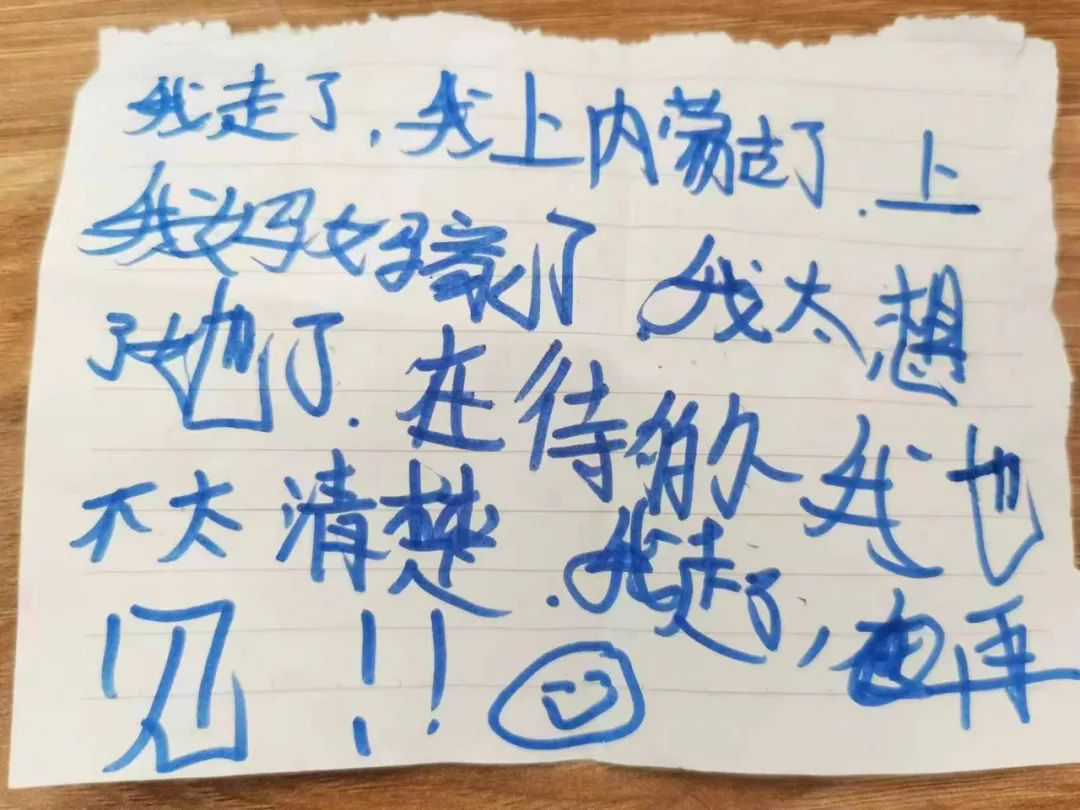 我走了，我上内蒙古了．上
我妈妈家了．我太想
了她了．在待多久我也
不太清楚．我走了，再
见！！